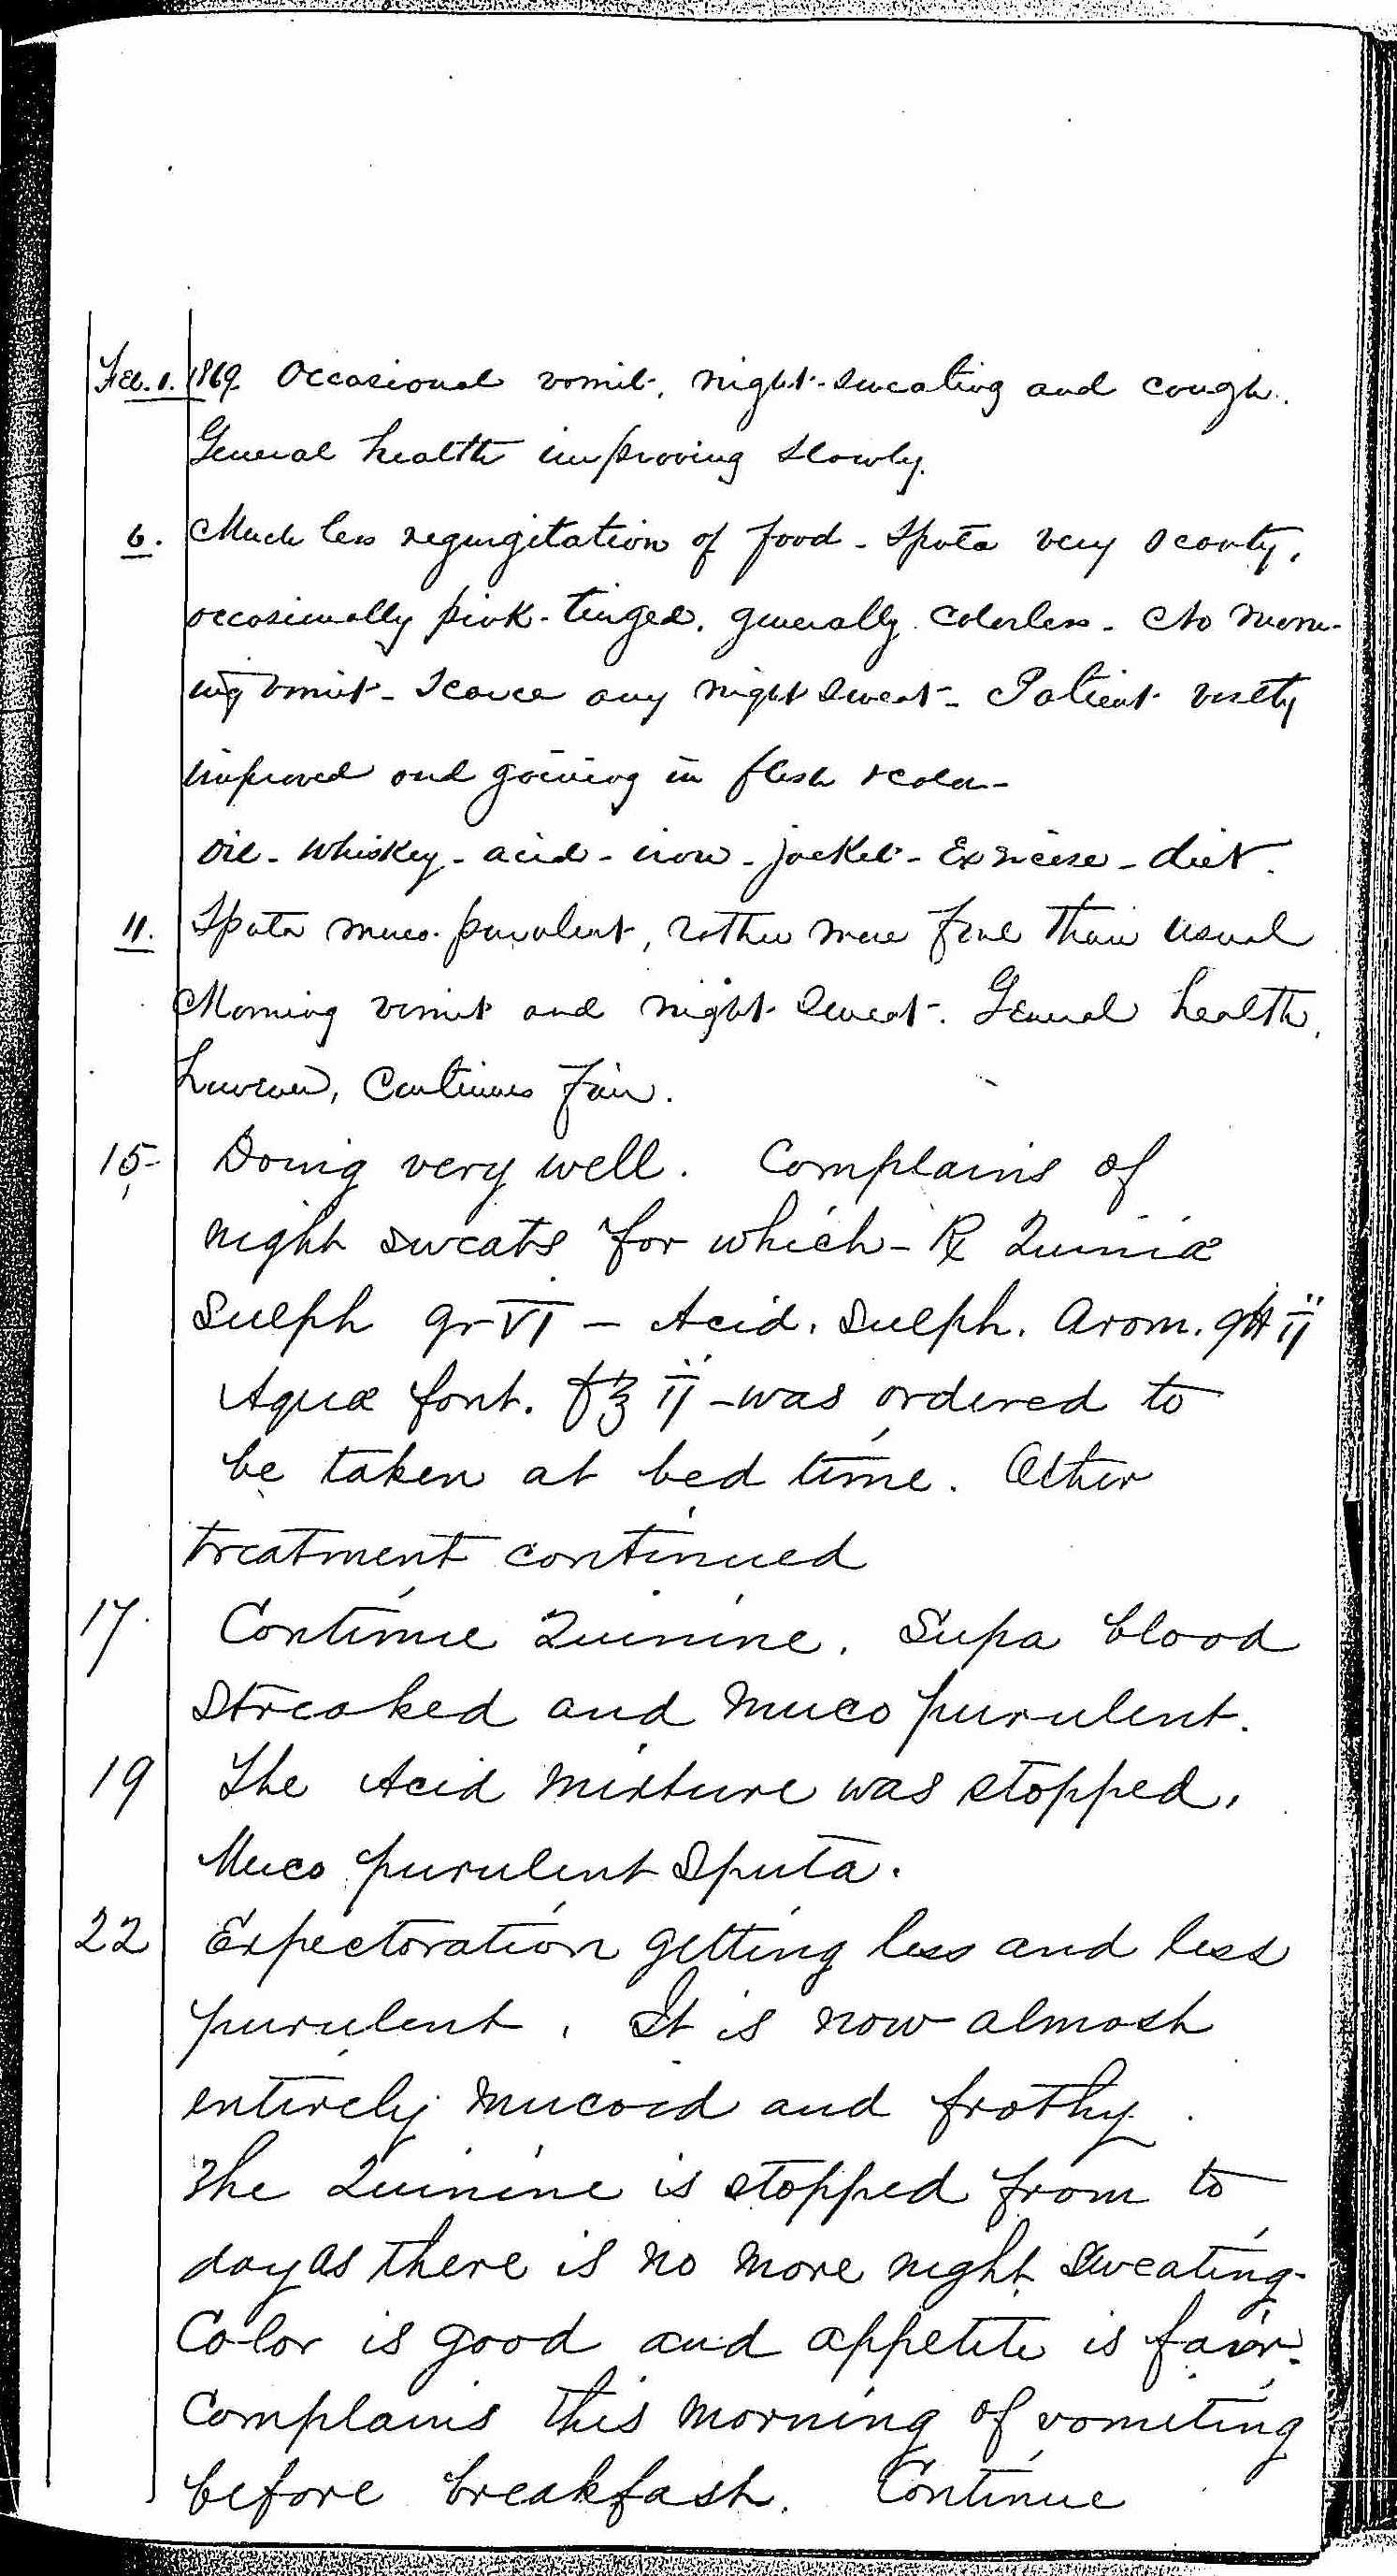 Feb. 1. 1869. Occasional vomit, night-sweating and cough.
General health improving slowly.
6. Much less regurgitation of food - Sputa very scanty,
occasionally pink-tinged, generally colorless - No morn-
ing vomit - Scarce any night sweat - Patient vastly
improved and gaining in flesh & color -
Oil - Whiskey - acid - iron - jacket - Exercise - diet.
11. Sputa muco-purulent, rather more free than usual
Morning vomit and night sweat. General health,
however, continues fair.
15 Doing very well. Complains of
night sweats for which - ℞ Quiniæ
Sulph gr VI - Acid. Sulph. Arom. gtt ij
Aquæ font. f℥ ij - was ordered to
be taken at bed time. Other
treatment continued
17. Continue Quinine. Supa blood
streaked and muco purulent.
19 The Acid mixture was stopped.
Muco purulent sputa.
22 Expectoration getting less and less
purulent. It is now almost
entirely mucoid and frothy.
The Quinine is stopped from to
day as there is no more night sweating.
Color is good and appetite is fair.
Complains this morning of vomiting
before breakfast. Continue